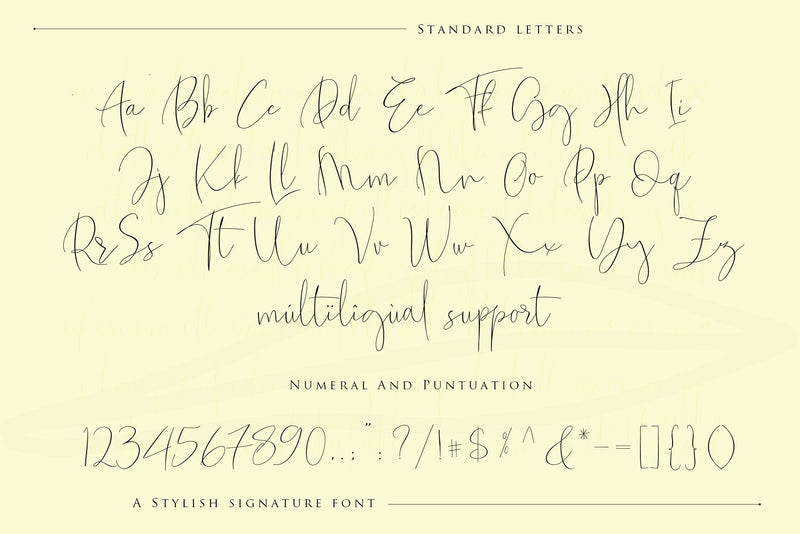 Standard letters
Aa Bb Cc Dd Ee Ff Gg Hh Ii
Jj Kk Ll Mm Nn Oo Pp Qq
Rr Ss Tt Uu Vv Ww Xx Yy Zz
múltïlîgùal support
Numeral And Puntuation
1234567890.,.; " : ? / ! # $ % ^ & * – = [] {} ()
A Stylish signature font